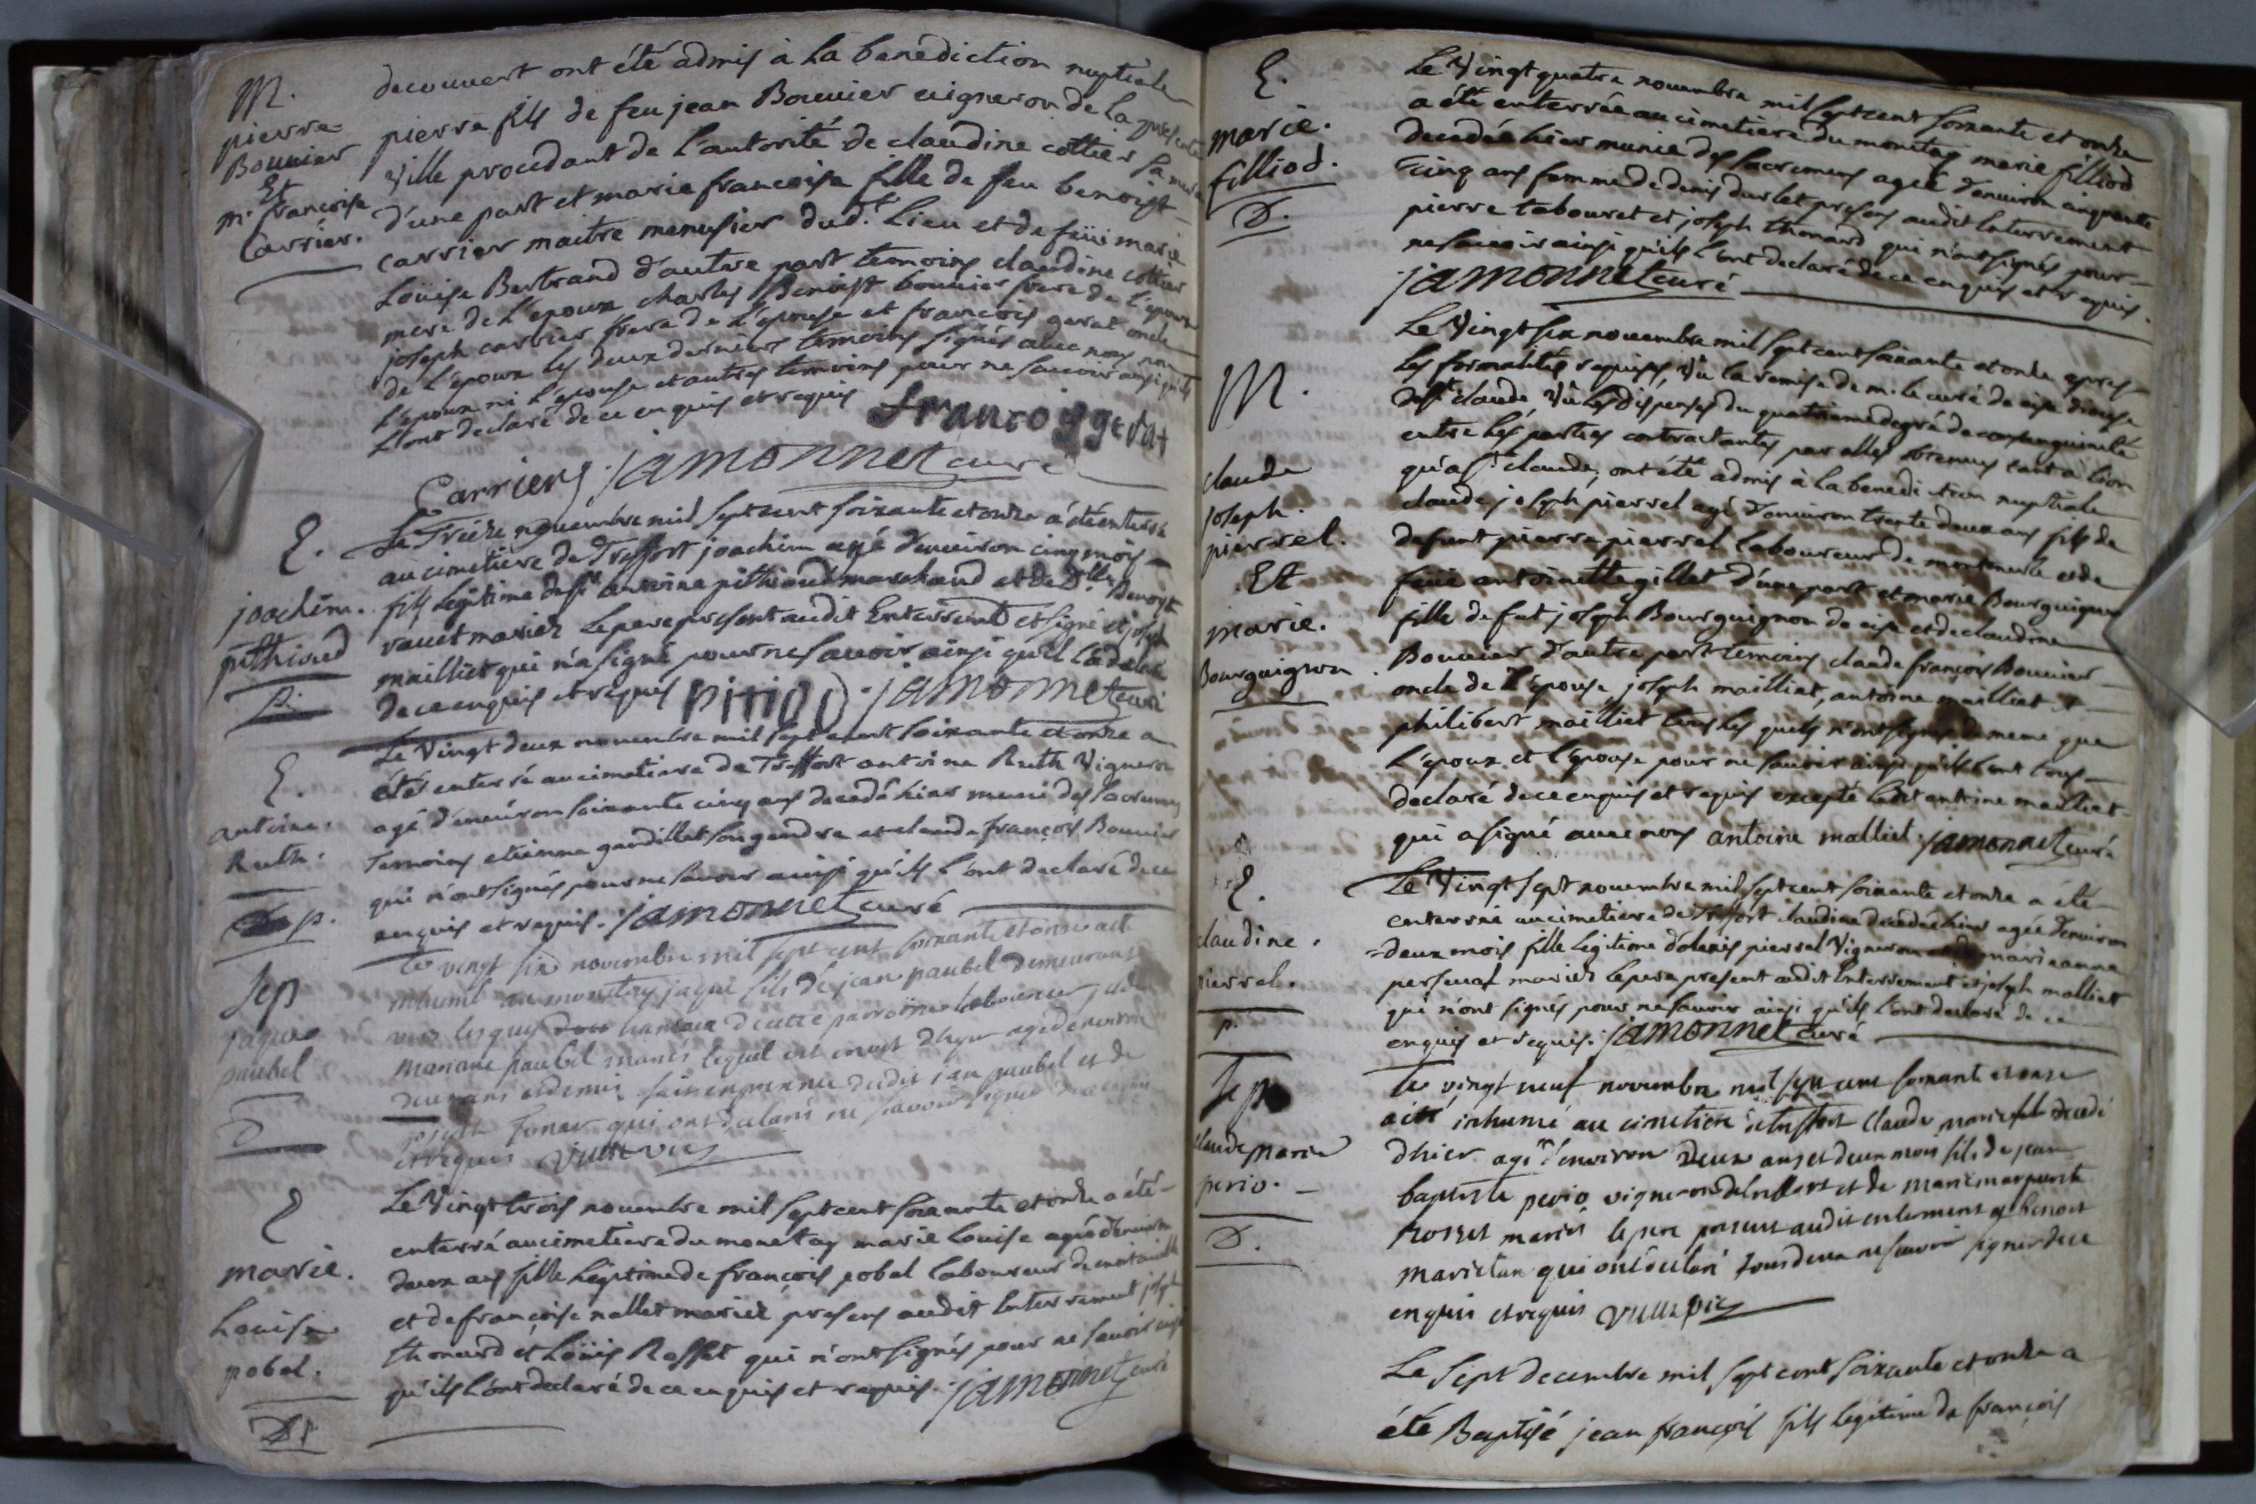 M.
pierre
Bouuier
Et
m.e francoise
Carrier.
decouuert ont été admis à la benédiction nuptiale
pierre fils de feu jean Bouuier uigneron de la presente
Ville procedant de l'autorité de claudine cottier sa mere
d'une part et marie francoise fille de feu benoist
carrier maitre menusier dud.t Lieu et de feüe marie
Loüise Bertrand d'autre part temoins claudine cottier
mere de l'epoux charles Benoist bouuier frere de l'epoux
joseph carrier frere de l'epouse et francois gerat oncle
de l'epoux les deux derniers temoins signés auec nous non
l'epoux ni l'epouse et autres temoins pour ne sauoir ainsi qu'ils
l'ont declaré de ce enquis et requis françois gerat
Carrier jamonnet curé
E.
joachim.
pithioud
p.
Le Treize nouembre mil sept cent soixante et onze a été enterré
au cimetiere de Treffort joachim agé d'enuiron cinq mois
fils legitime de s.r antoine pithioud marchand et de d.lle Benoite
rauet mariés le pere present audit Enterrement et signé et joseph
mailliet qui n'a signé pour ne sauoir ainsi qu'il l'a declaré
de ce enquis et requis pitiod jamonnet curé
E.
antoine.
Ruth.
p.
Le Vingt deux nouembre mil sept cent soixante et onze a
été enterré au cimetiere de Treffort antoine Ruth Vigneron
agé d'enuiron soixante cinq ans decedé hier muni des sacremens
Temoins etienne gaudillet son gendre et claude françois Bouuier
qui n'ont signés pour ne sauoir ainsi qu'ils l'ont declaré de ce
enquis et requis. jamonnet curé
Sep
jaque
paubel
D
Le vingt six novembre mil sept cent soixante et onze a eté
inhumé au monetay jaque fils de jean paubel demeurant
laboureur
mariane paubel mariés lequel est mort d'hyer agé d'environ
deux ans et demi fait en presence dudit jean paubel et de
joseph qui ont declaré ne savoir signer de ce enquis
et requis vuillerviez
E
marie.
Louise
pobel.
D
Le Vingt trois nouembre mil sept cent soixante et onze a été
enterré au cimetiere du monetay marie louise agée d'enuiron
deux ans fille legitime de françois pobel laboureur de montauille
et de françoise nallet mariés presens audit Enterrement joseph
thonard et Loüis Rosset qui n'ont signés pour ne sauoir ainsi
qu'ils l'ont declaré de ce enquis et requis. jamonnet curé
E.
marie.
filliod.
D.
Le Vingt quatre nouembre mil sept cent soixante et onze
a été enterrée au cimetiere du monetay marie filliod
decedée hier munie des sacremens agée d'enuiron cinquante
cinq ans femme de denis durlet presens audit Enterrement
pierre tabouret et joseph thonard qui n'ont signés pour
ne sauoir ainsi qu'ils l'ont declaré de ce enquis et requis.
jamonnet curé
M.
claude
joseph.
pierrel.
Et
marie.
Bourguignon
Le Vingt six nouembre mil sept cent soixante et onze apres
les formalités requises, Vu la remise de m. le curé de cise diocese
de s.t claude Vu les dispenses du quatrieme degré de consanguinité
entre les parties contractantes par elles obtenues tant à lion
qu'a s.t claude, ont été admis à la benediction nuptiale
claude joseph pierrel agé d'enuiron trente deux ans fils de
defunt pierre pierrel laboureur de montmerle et de
feue antoinette gillet d'une part et marie Bourguignon
fille de fut joseph Bourguignon de cise et de claudine
Bouuier d'autre part temoins claude françois Bouuier
oncle de l'épouse joseph mailliet, antoine mailliet et
philibert mailliet tous les quels n'ont signés de meme que
l'époux et l'épouse pour ne sauoir ainsi qu'ils l'ont tous
declaré de ce enquis et requis excepté ledit antoine mailliet
qui a signé auec nous antoine malliet. jamonnet curé
E.
claudine.
pierrel.
p.
Le Vingt sept nouembre mil sept cent soixante et onze a été
enterrée au cimetiere de Treffort claudine decedée hier agée d'enuiron
deux mois fille legitime d'alexis pierrel Vigneron et de marieanne
perseual mariés le pere present audit Enterrement et joseph malliet
qui n'ont signés pour ne sauoir ainsi qu'ils l'ont declaré de ce
enquis et requis. jamonnet curé
Sep
claude marie
perio.
D.
Le vingt neuf novembre mil sept cent soixante et onze
a eté inhumé au cimetiere de treffort claude marie decedé
d'hier agé d'environ deux ans et deux mois fils de jean
baptiste perio vigneron de treffort et de marie marguerite
Rosset mariés le pere present audit enterement et benoit
marietan qui ont declaré tous deux ne savoir signer de ce
enquis et requis vuillerviez
Le sept decembre mil sept cent soixante et onze a
été Baptisé jean françois fils legitime de françois